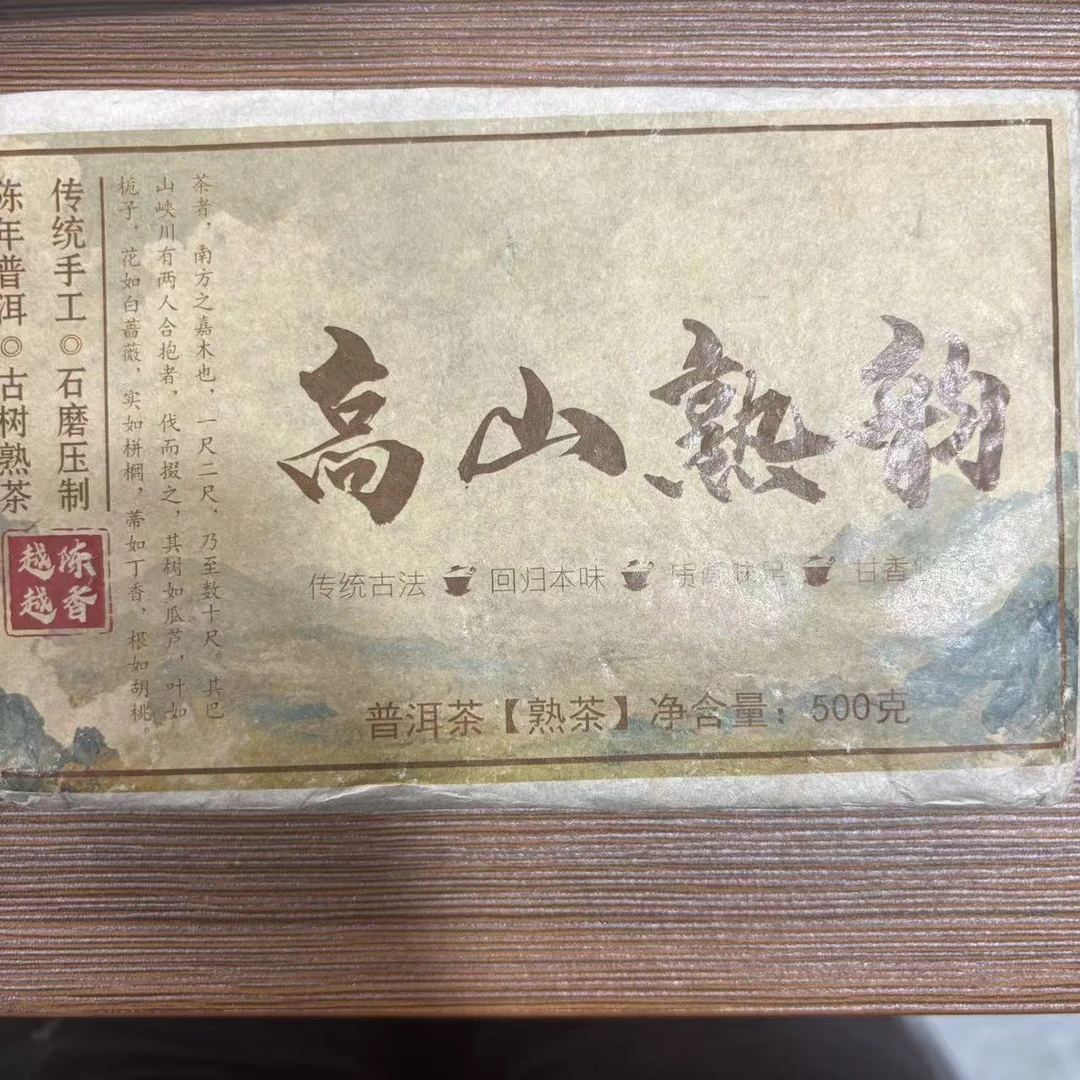 高山熟韵
传统古法 回归本味 甘香
普洱茶【熟茶】净含量：500克
茶者，南方之嘉木也，一尺二尺，乃至数十尺。其巴
山峡川有两人合抱者，伐而掇之，其树如瓜芦，叶如
栀子，花如白蔷薇，实如栟榈，蒂如丁香，根如胡桃。
传统手工◎石磨压制
陈年普洱◎古树熟茶
陈香
越越